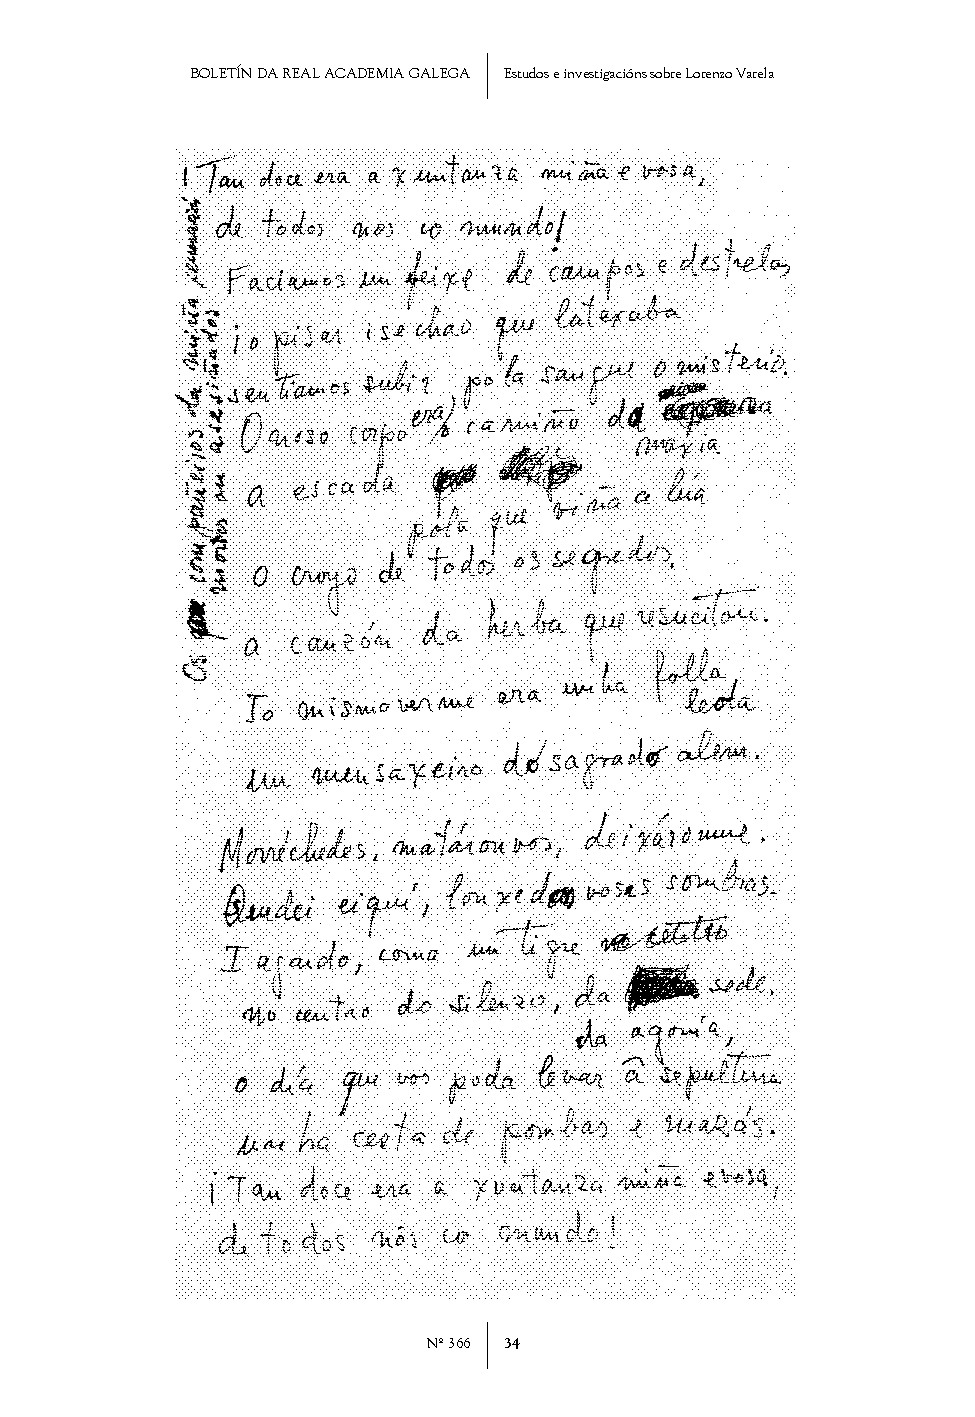 BOLETÍN DA REAL ACADEMIA GALEGA
Estudos e investigacións sobre Lorenzo Varela
¡Tan doce era a xuntanza miña e vosa,
de todos nós co mundo!
Faciamos un feixe de campos e destrelas
i o pisar ise chao que latexaba
sentiamos subir pola sangue o misterio.
O noso corpo era o camiño da
maxia
a escada
pola que viña a lúa
o croyo de todos os segredos,
a canzón da herba que resucitou.
Io mismo verme era unha folla
leda
un mensaxeiro do sagrado alem.
Morréchedes, matáronvos, deixáronme.
Quedei eiquí, lonxe das vosas sombras.
I agardo, como un tigre
no centro do silenzo, da sede,
da agonía,
o día que vos poda levar â sepultura
unha cesta de pombas e mazás.
¡Tan doce era a xuntanza miña e vosa,
de todos nós co mundo!
Os compañeiros da miña
mortos ou asesiñados
Nº 366
34